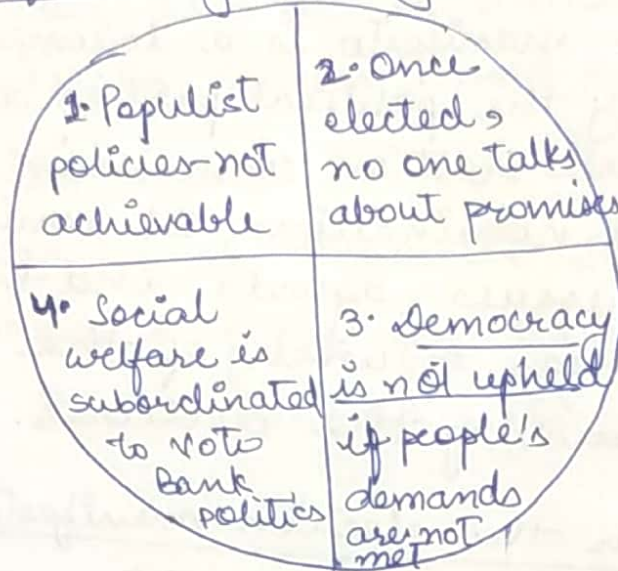 1. Populist
policies-not
achievable
2. Once
elected,
no one talks
about promises
3. Democracy
is not upheld
if people's
demands
are not
met
4. Social
welfare is
subordinated
to vote
Bank
politics